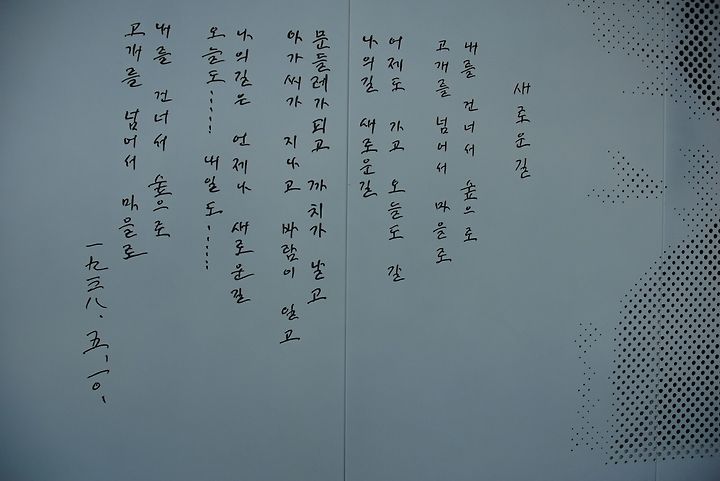 새로운길
내를 건너서 숲으로
고개를 넘어서 마을로
어제도 가고 오늘도 갈
나의길 새로운길
문들레가피고 까치가 날고
아가씨가 지나고 바람이 일고
나의길은 언제나 새로운길
오늘도…… 내일도……
내를 건너서 숲으로
고개를 넘어서 마을로
一九三八. 五. 一〇.